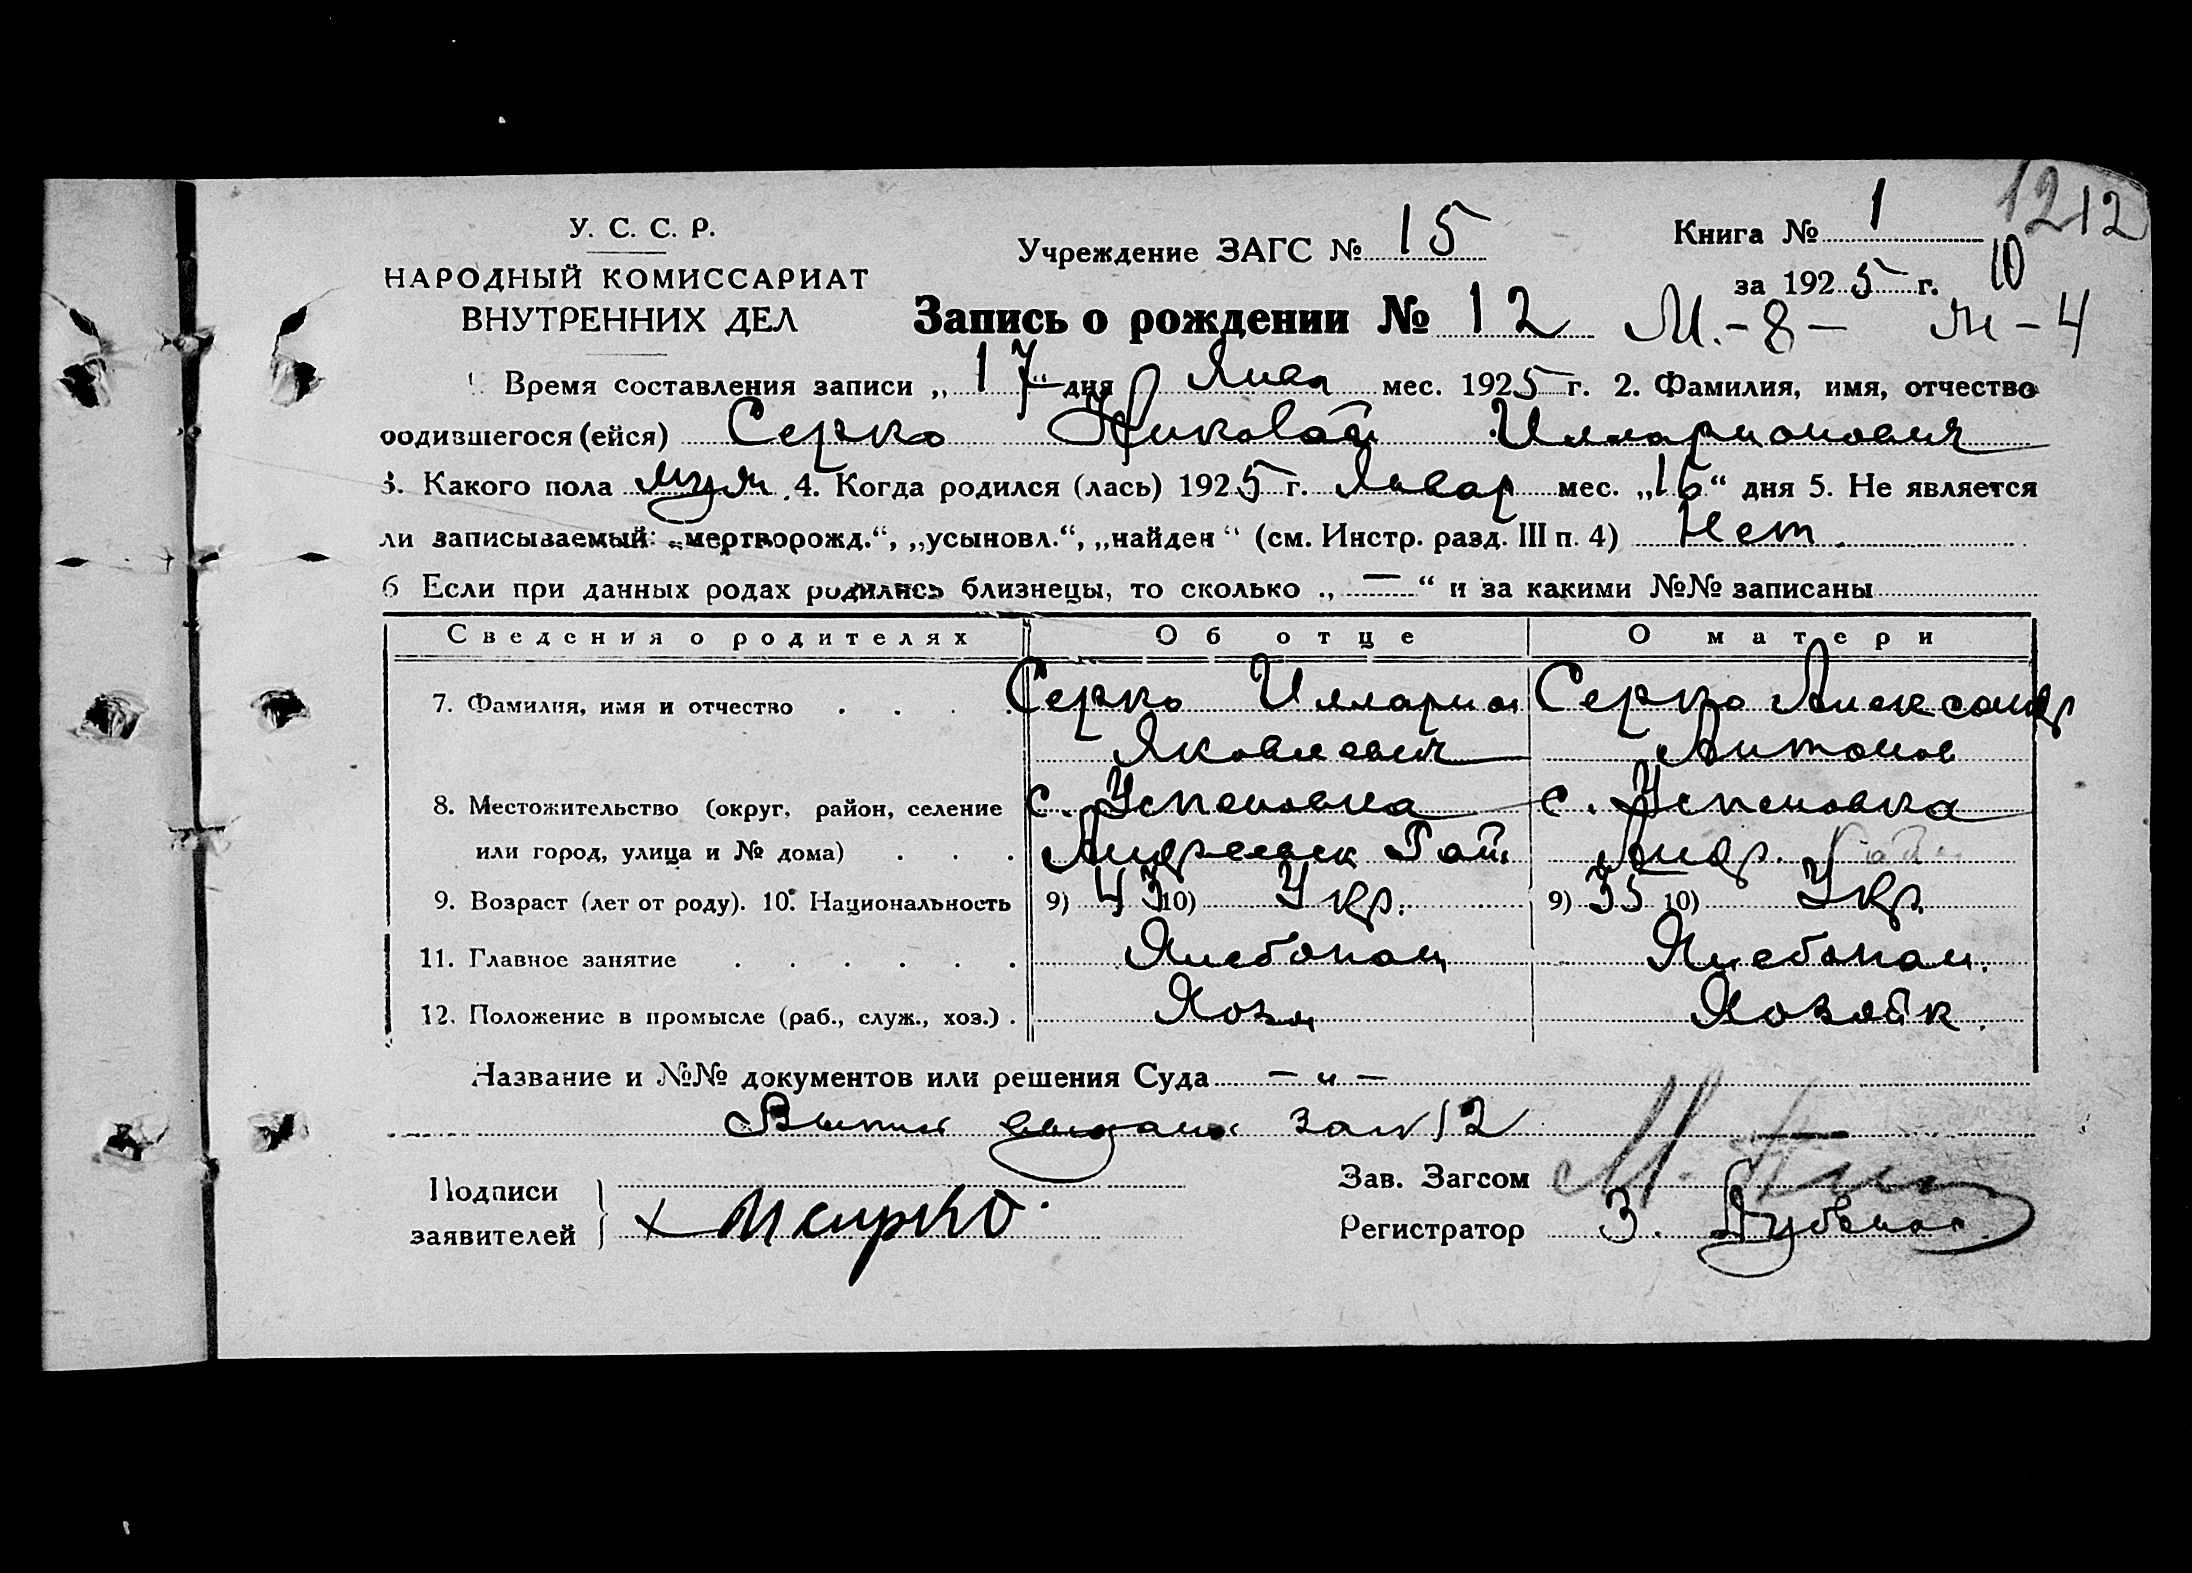 1212
У. С. С. Р.
НАРОДНЫЙ КОМИССАРИАТ
ВНУТРЕННИХ ДЕЛ
Учреждение ЗАГС № 15
Книга № 1
за 1925 г. 10
Запись о рождении № 12 М.-8- ж-4
Время составления записи „17“ дня Янва мес. 1925 г. 2. Фамилия, имя, отчество
родившегося (ейся) Серко Николай Илларионович
3. Какого пола муж. 4. Когда родился (лась) 1925 г. Январ мес. „16“ дня 5. Не является
ли записываемый: „мертворожд.“, „усыновл.“, „найден“ (см. Инстр. разд. III п. 4) Нет.
6 Если при данных родах родились близнецы, то сколько „—“ и за какими №№ записаны
Сведения о родителях Об отце О матери
7. Фамилия, имя и отчество . . . . Серко Илларион Серко Александр
Яковлевич Антонов
8. Местожительство (округ, район, селение с. Успеновка с. Успеновка
или город, улица и № дома) . . . Андреевск Рай. Андр. Рай.
9. Возраст (лет от роду). 10. Национальность 9) 43 10) Укр. 9) 35 10) Укр.
11. Главное занятие . . . . . . Хлебопаш Хлебопаш.
12. Положение в промысле (раб., служ., хоз.) . Хозя Хозяйк.
Название и №№ документов или решения Суда — и —
Выпись выдана за № 12
Подписи
заявителей
Зав. Загсом
Регистратор З.